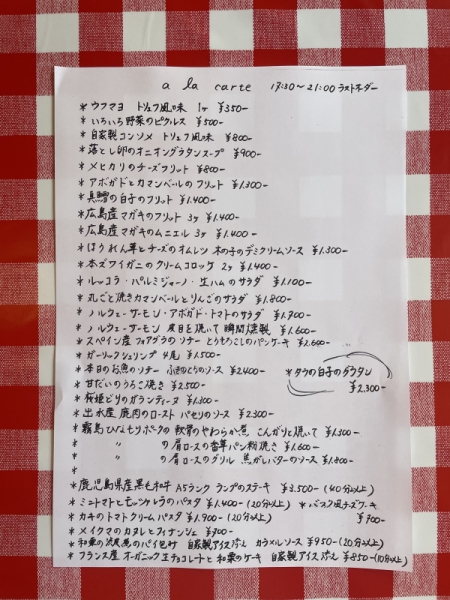 a la carte 17:30～21:00 ラストオーダー
* ウフマヨ トリュフ風味 1ヶ ¥350-
* いろいろ野菜のピクルス ¥500-
* 自家製コンソメ トリュフ風味 ¥800-
* 落とし卵のオニオングラタンスープ ¥900-
* メヒカリのチーズフリット ¥800-
* アボガドとカマンベールのフリット ¥1.300-
* 真鱈の白子のフリット ¥1.400-
* 広島産マガキのフリット 3ヶ ¥1.400-
* 広島産マガキのムニエル 3ヶ ¥1.400-
* ほうれん草とチーズのオムレツ 木の子のデミクリームソース ¥1.300-
* 本ズワイガニのクリームコロッケ 2ヶ ¥1.400-
* ルッコラ・パルミジャーノ・生ハムのサラダ ¥1.100-
* 丸ごと焼きカマンベールとりんごのサラダ ¥1.800-
* ノルウェーサーモン・アボガド・トマトのサラダ ¥1.700-
* ノルウェーサーモン 皮目を焼いて 瞬間燻製 ¥1.600-
* スペイン産 フォアグラのソテー とうもろこしのパンケーキ ¥2.600-
* ガーリックシュリンプ 4尾 ¥1.500-
* 本日のお魚のソテー のソース ¥2.400-
* タラの白子のグラタン ¥2.300-
* 甘だいのうろこ焼き ¥2.500-
* 桜姫どりのガランティーヌ ¥1.300-
* 出水産 鹿肉のロースト パセリのソース ¥2.300-
* 霧島ひなもりポークの 軟骨のやわらか煮 こんがりと焼いて ¥1.300-
* 〃 〃 の肩ロースの香草パン粉焼き ¥1.600-
* 〃 〃 の肩ロースのグリル 焦がしバターのソース ¥1.800-
* 鹿児島県産黒毛和牛 A5ランク ランプのステーキ ¥3.500-(40分以上)
* ミニトマトとモッツァレラのパスタ ¥1.400-(20分以上)
* バスク風チーズケーキ ¥700-
* カキのトマトクリームパスタ ¥1.900-(20分以上)
* メイクマのカヌレとフィナンシェ ¥700-
* 和栗の渋皮煮のパイ包み 自家製アイス添え カラメルソース ¥950-(20分以上)
* フランス産 オーガニック生チョコレートと和栗のケーキ 自家製アイス添え ¥850-(10分以上)